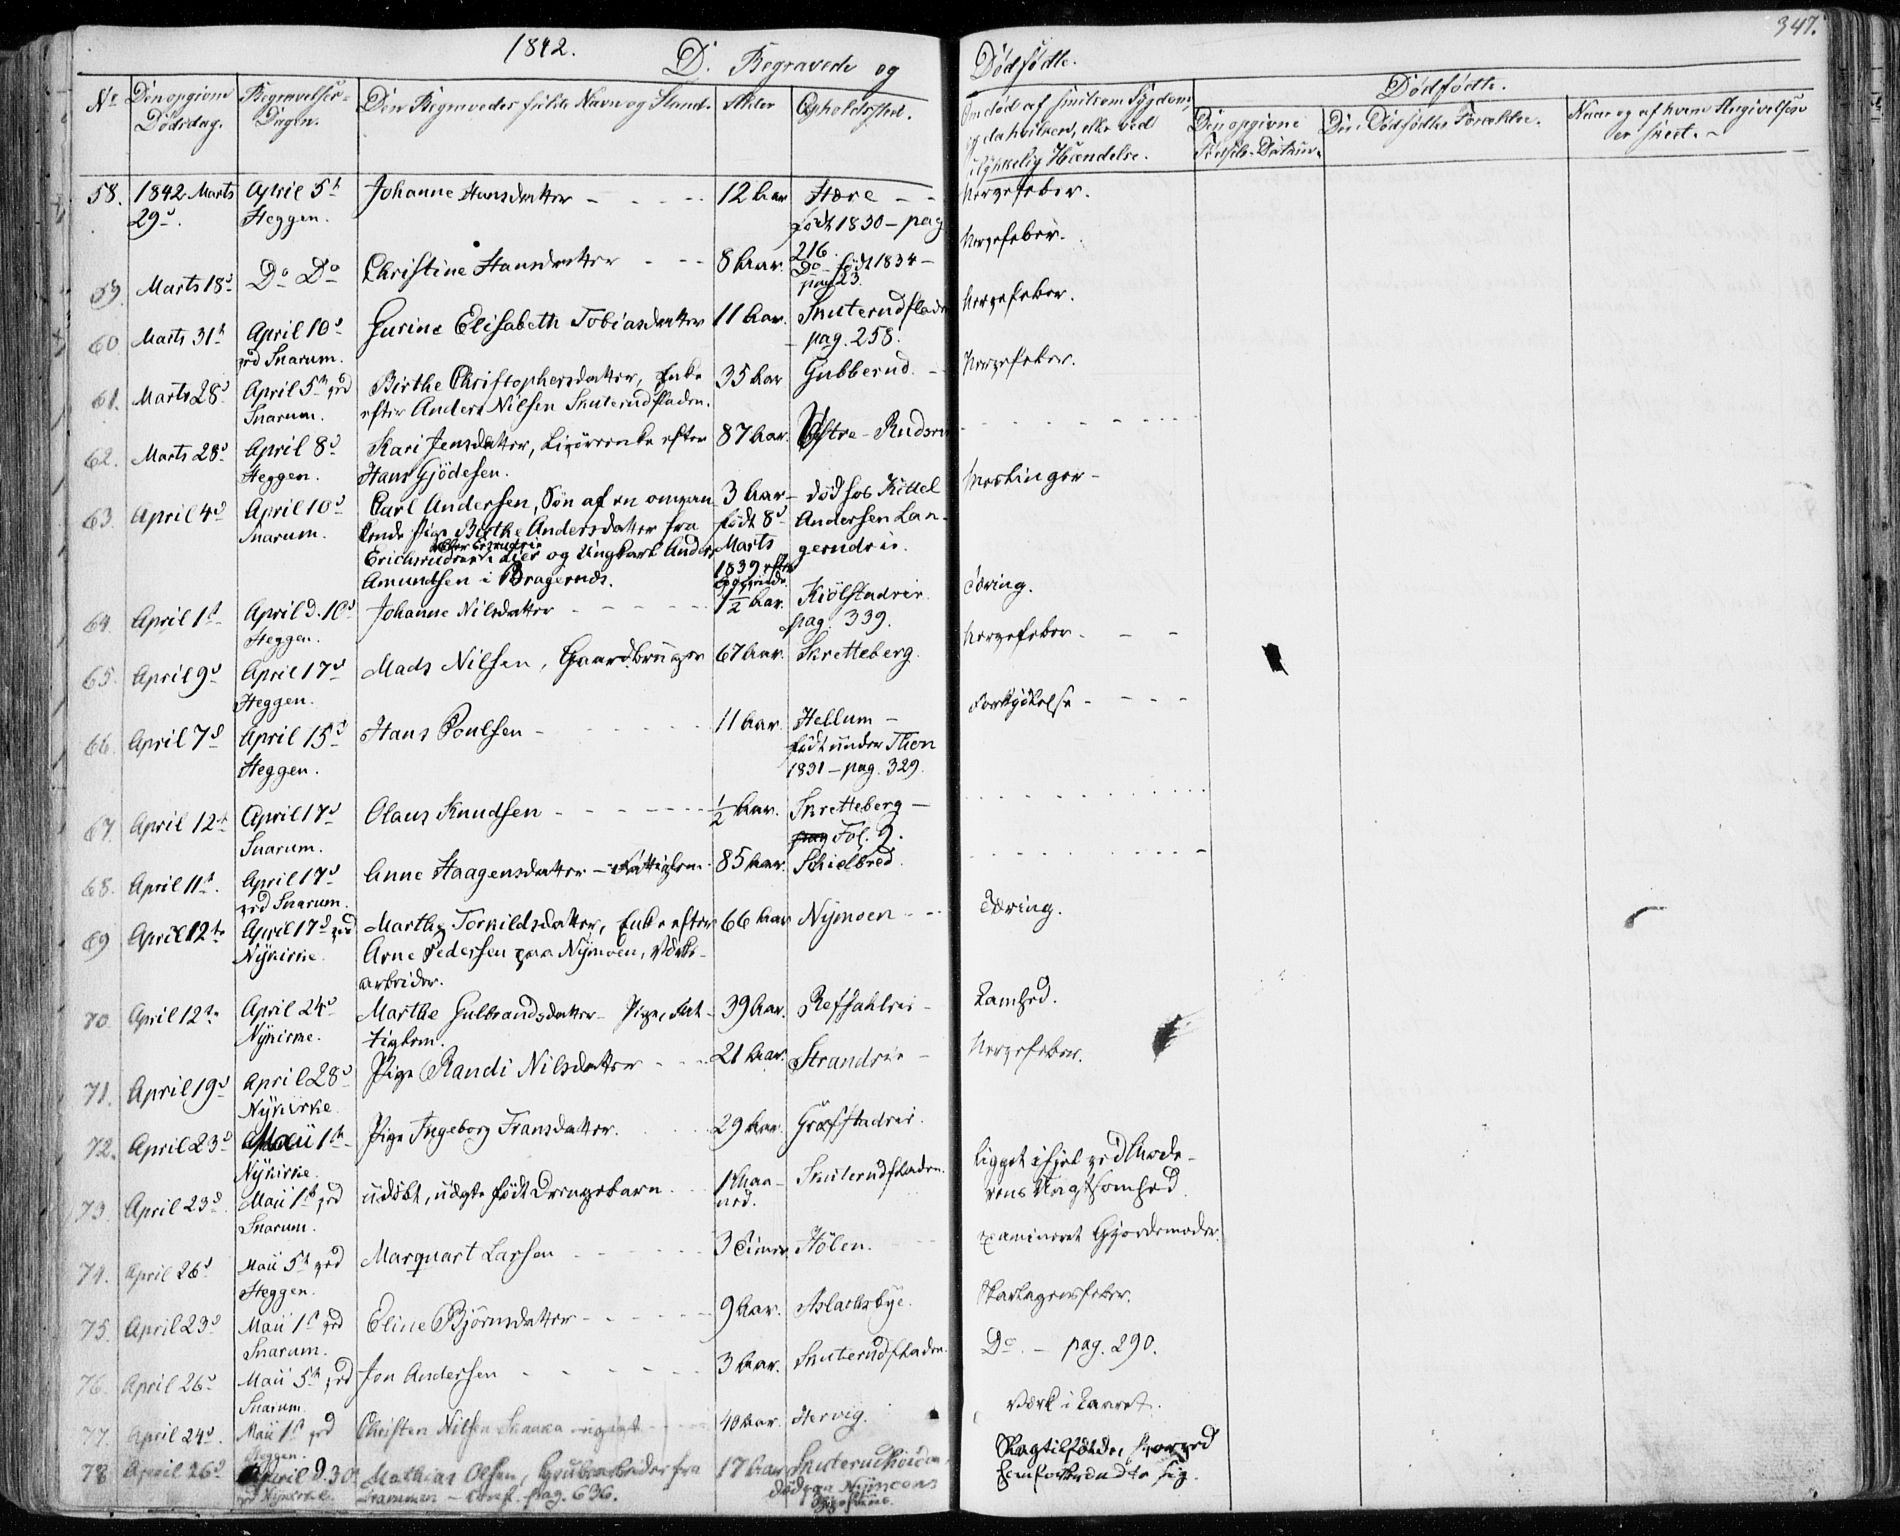 1842.
D. Begravede og
Dødfødte.
347.
No
Den opgivne Dødsdag.
Begravelses-Dagen.
Den Begravedes fulde Navn og Stand.
Alder
Opholdssted.
Om død af smitsom Sygdom,
og da hvilken, eller ved
ulykkelig Hændelse.
Dødfødte.
Den opgivne Fødsels-Datum.
Den Dødfødtes Forældre.
Naar og af hvem Angivelsen er skeet.
58. 1842 Marts 29d. April 5t Heggen. Johanne Hansdatter 12 Aar Hære født 1830 – pag 216. Nervefeber.
59. Marts 18d Do Do Christine Hansdatter 8 Aar. Do født 1834 – pag 23. Nervefeber.
60 Marts 31t April 10d ved Snarum. Gurine Elisabeth Tobiasdatter 11 Aar. Skuterudfladen pag. 258. Nervefeber.
61. Marts 28d April 5th ved Snarum. Birthe Christophersdatter, Enke efter Anders Nilsen Skuterudfladen. 35 Aar Gubberud. Nervefeber.
62. Marts 28d April 8d Heggen. Kari Jensdatter, Enke efter Hans Gjödesen. 87 Aar. Østre-Rudsrei
63. April 4d April 10d Snarum. Carl Andersen, Søn af en omvankende Pige Birthe Andersdatter fra Erichsrudrei i Lier og Ungkarl Anders Amundsen i Bragernes. 3 Aar – født 8d Marts 1839 efter Opgivende. død hos Kittel Andersen Langerudrei. Meslinger –
64. April 1t April d. 10d Heggen. Johanne Nilsdatter 1½ Aar. Kiölstadrei pag. 339. Tæring.
65. April 9d April 17d Heggen. Mads Nilsen, Gaardbruger 67 Aar. Skretteberg. Nervefeber
66. April 7d April 15d Heggen. Hans Poulsen 11 Aar. Hellum – født under Thon 1831 – pag. 329. Forkjølelse
67. April 12t April 17d Snarum. Olaus Knudsen ½ Aar. Skretteberg – Fol. 9.
68. April 11t. April 17d ved Snarum. Anne Haagensdatter – Fattiglem. 85 Aar. Schielbred.
69 April 12te April 17d ved Nykirke. Marthe Torkildsdatter, Enke efter Arne Pedersen paa Nymoen, Værksarbeider. 66 Aar Nymoen Tæring.
70. April 12te April 24d Nykirke. Marthe Gulbrandsdatter – Pige, Fattiglem. 39 Aar. Refsahlrei – Lamhed.
71. April 19d April 28d Nykirke. Pige Randi Nilsdatter 21 Aar. Strandrie – Nervefeber.
72. April 23d Maii 1te Nykirke. Pige Ingeborg Fransdatter. 29 Aar. Græfstadrei.
73. April 23d Maii 1t ved Snarum. udøbt, uægte født Drengebarn. 1 Maaned. Skuterudfladen. ligget ihjel ved Moderens Uagtsomhed.
74. April 26d Maii 5t ved Heggen. Marquart Larsen 3 Timer Hölen. examineret Gjordemoder.
75. April 23d Maii 1t ved Snarum. Eline Bjørnsdatter 9 Aar. Aslachsbye. Skarlagensfeber.
76. April 26d Maii 5th ved Snarum. Jon Andersen 3 Aar. Skuterudfladen. Do. – pag. 290.
77. April 24d. Maii 1t ved Heggen. Christen Nilsen ugivt 40 Aar. Hervig. Værk i Laaret.
78 April 26d April d. 30te ved Nykirke. Mathias Olsen, Grubearbeider fra Drammen – conf. pag. 636. 17 Aar død paa Nymoens